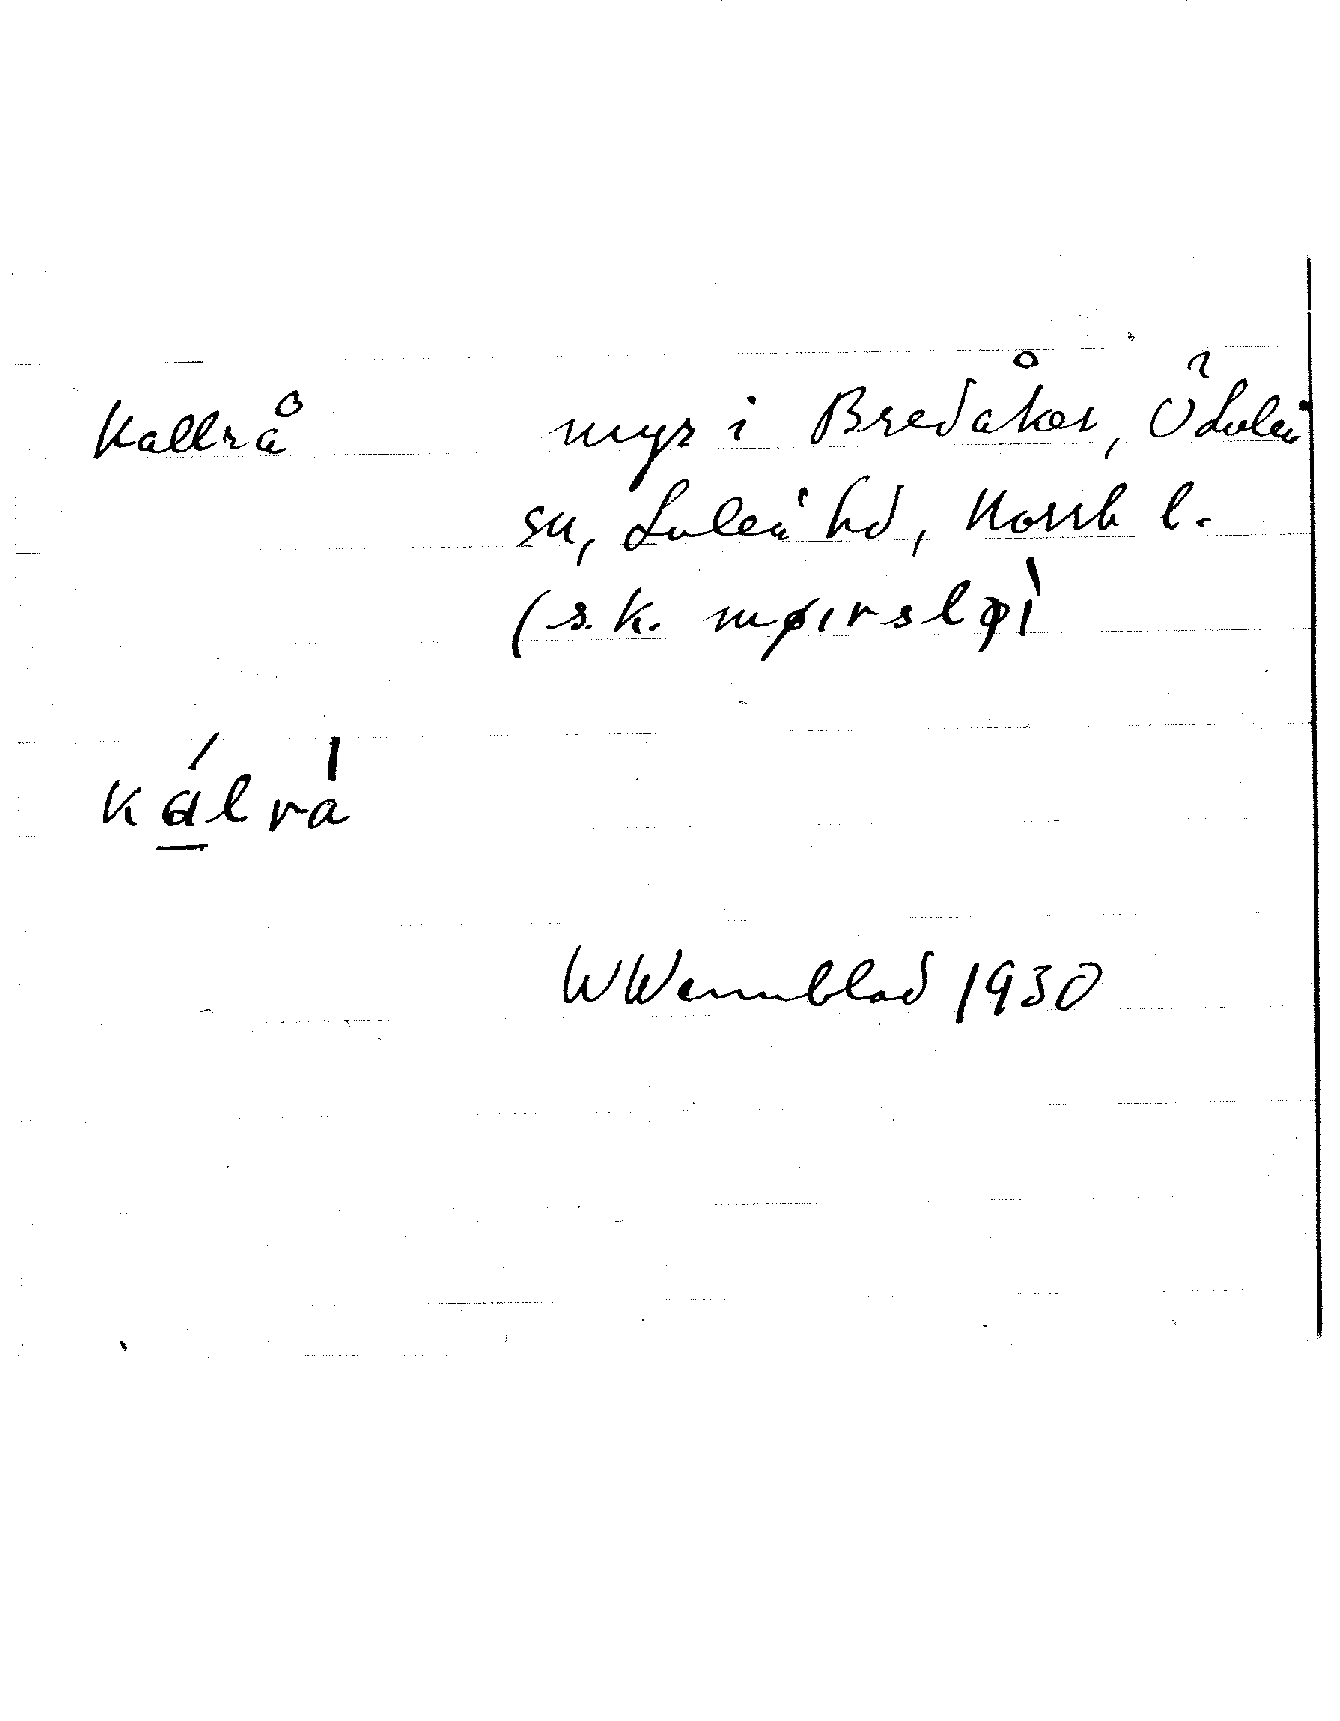 Kallrå myr i Bredåker, Ö Luleå
sn, Luleå hd, Norrb l.
(s.k. møırsløì
kálrá
WWennblad 1930